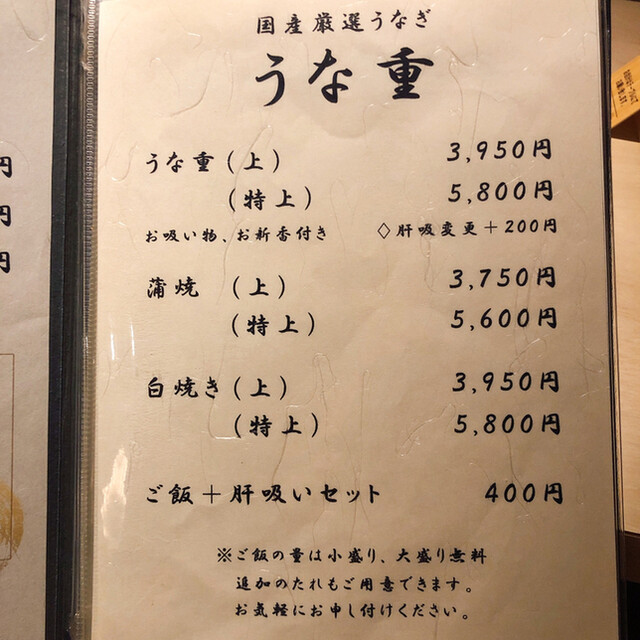 国産厳選うなぎ
うな重
うな重(上) 3,950円
(特上) 5,800円
お吸い物、お新香付き ◇肝吸変更+200円
蒲焼 (上) 3,750円
(特上) 5,600円
白焼き(上) 3,950円
(特上) 5,800円
ご飯+肝吸いセット 400円
※ご飯の量は小盛り、大盛り無料
追加のたれもご用意できます。
お気軽にお申し付けください。
円
円
円